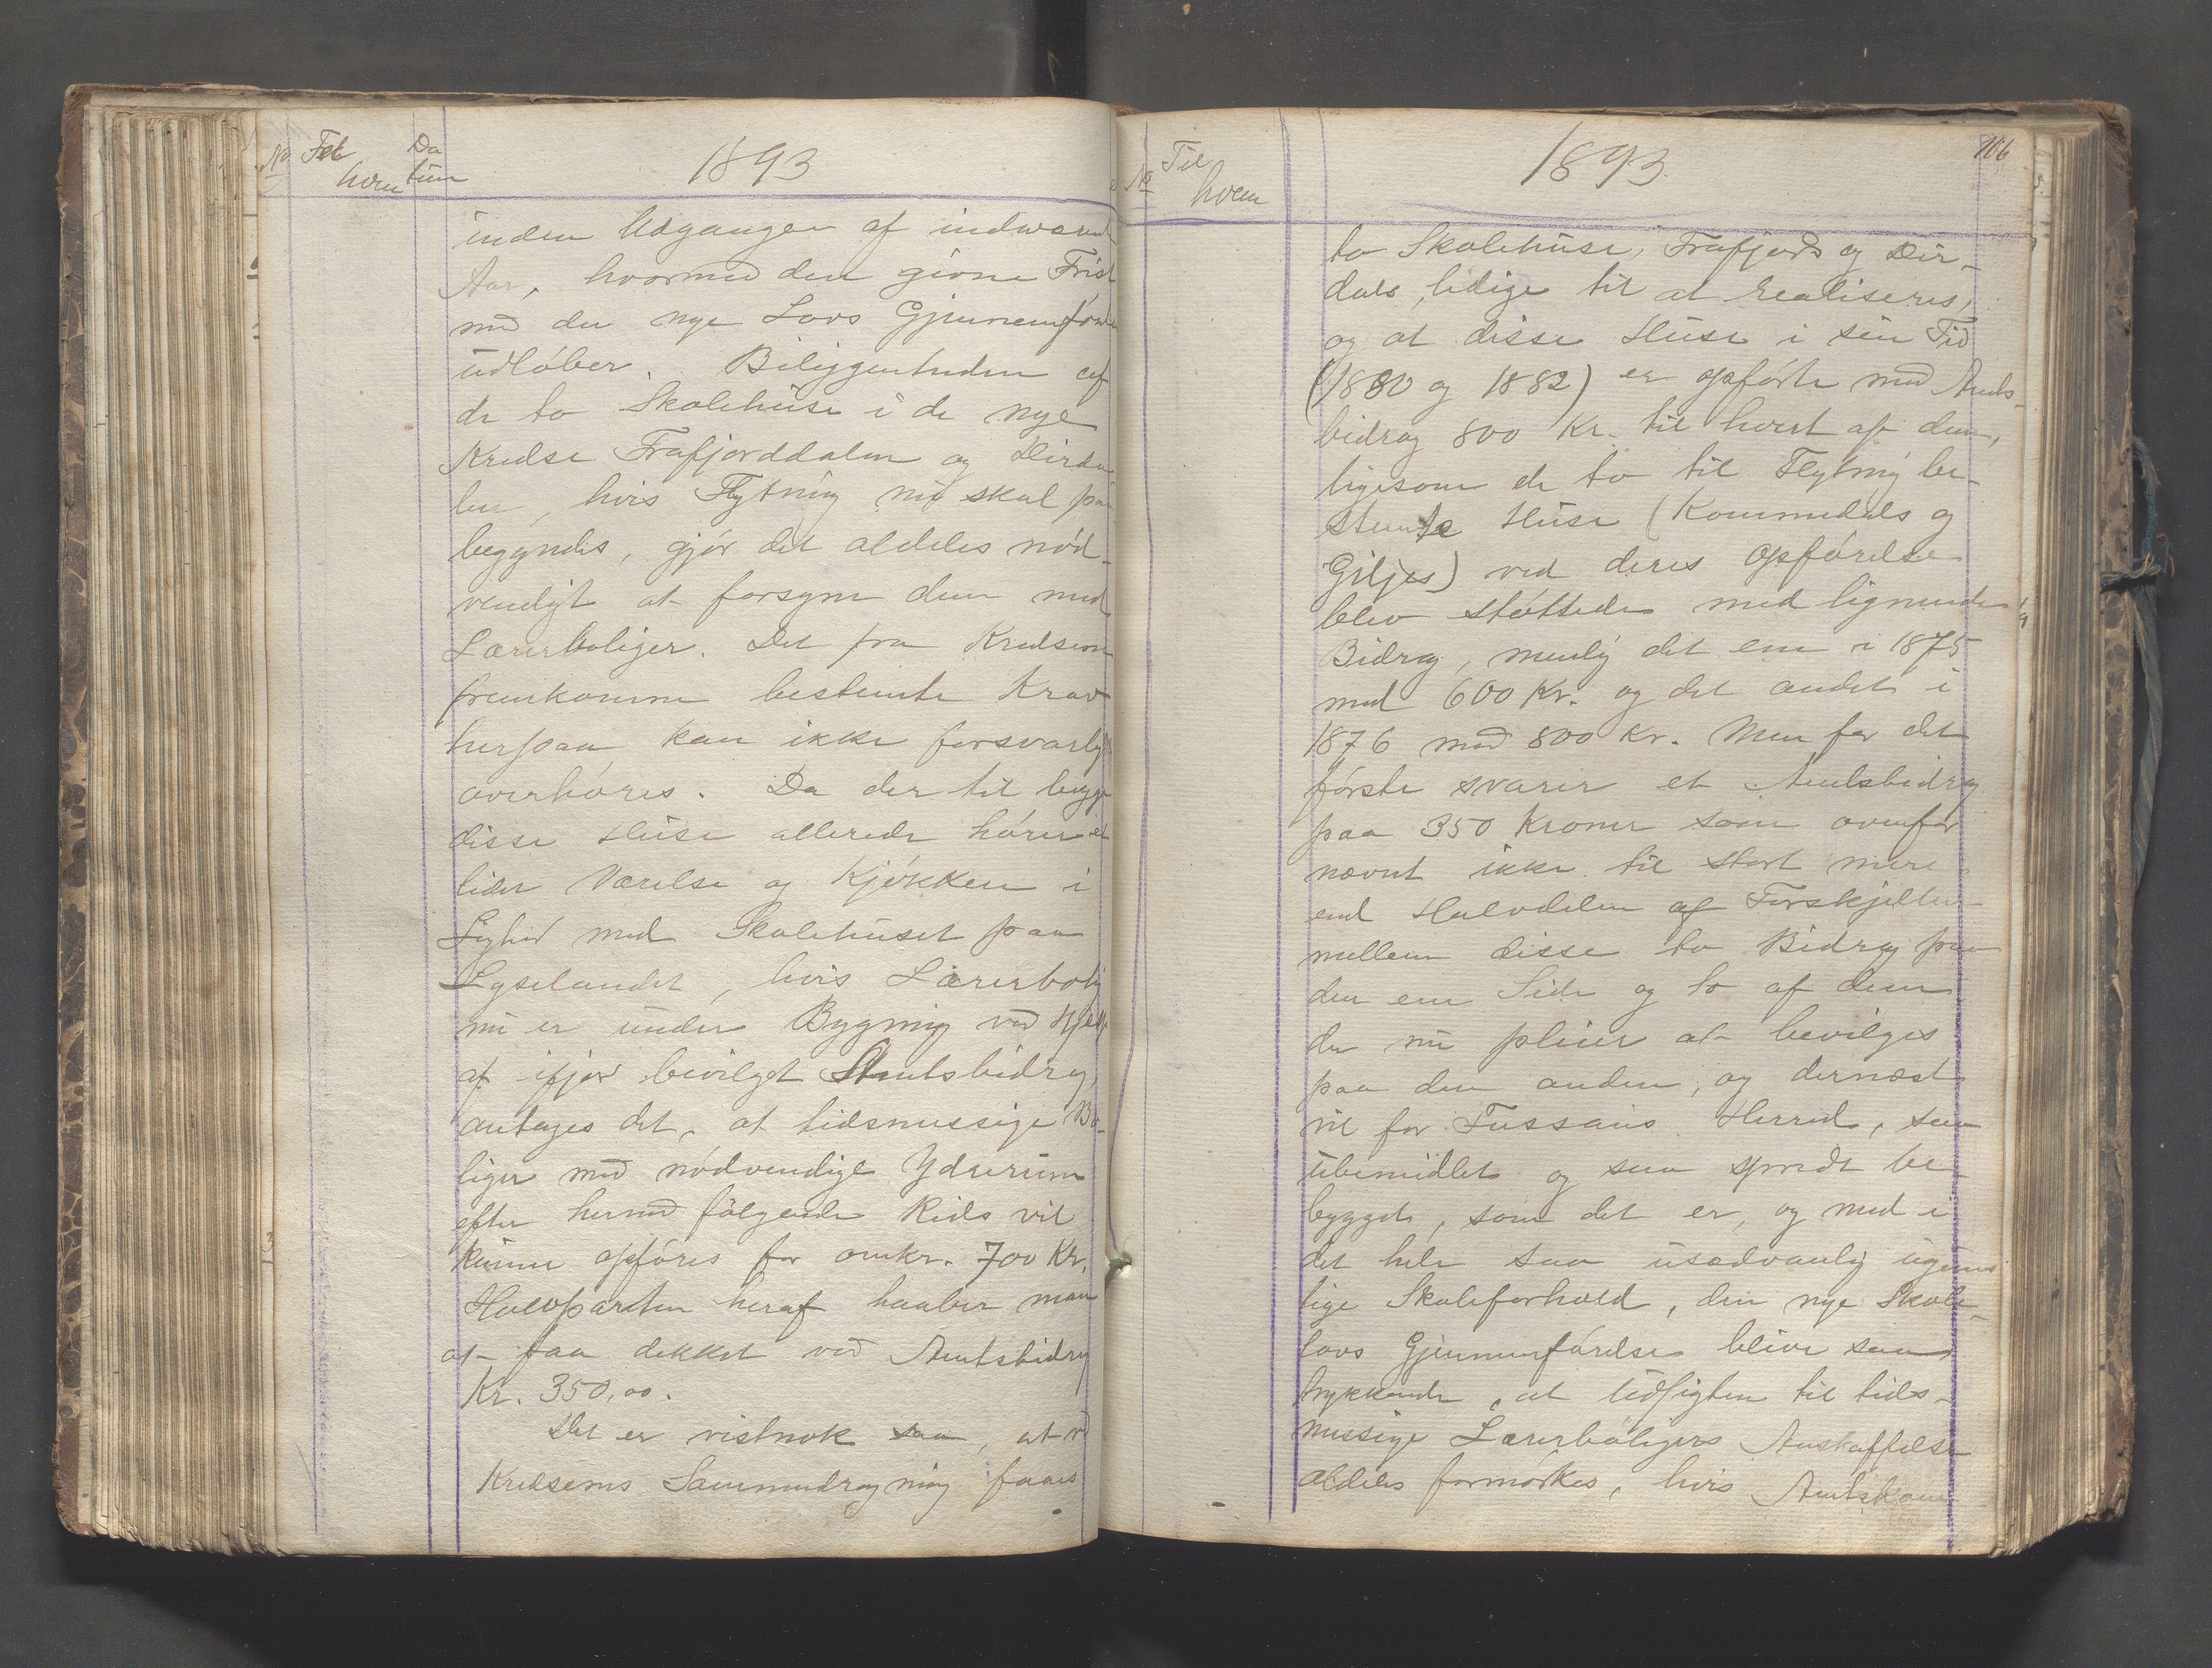 No Til hvem Datum 1893
inden Udgangen af indværend
Aar, hvormed den givne Frist
med den nye Lovs Gjennemför
udlöber. Beliggenheden af
de to Skolehuse i de nye
Kredse Frafjorddalen og Dirda
len, hvis Flytning nu skal paa
begyndes, gjör det aldeles nöd-
vendigt at forsyne dem med
Lærerboliger. Det fra Kredsene
fremkomne bestemte Krav
herpaa kan ikke forsvarlig
overhöres. Da der til begge
disse Huse allerede hörer et
lidet Værelse og Kjökken i
Lighed med Skolehuset paa
Lyselandet, hvis Lærerbolig
nu er under Bygning ved Hjelp
af ifjor bevilget Amtsbidrag,
antages det, at tidsmessige Bo-
liger med nödvendige Yderrum
efter hermed fölgende Rids vil
kunne opföres for omkr. 700 Kr.
Halvparten heraf haaber man
at faa dekket ved Amtsbidrag
Kr. 350,00.
Det er vistnok saa, at ved
Kredsenes Sammendragning faaes
No Til hvem 1893. 106
to Skolehuse, Frafjords og Dir-
dals, ledige til at realiseres,
og at disse Huse i sin Tid
(1880 og 1882) er opförte med Amts-
bidrag 800 Kr. til hvert af dem,
ligesom de to til Flytning be-
stemte Huse (Kommedals og
Giljes) ved deres Opförelse
blev stöttede med lignende
Bidrag, nemlig det ene i 1875
med 600 Kr. og det andet i
1876 med 800 Kr. Men for det
förste svarer et Amtsbidrag
paa 350 Kroner som ovenfor
nævnt ikke til stort mere
end Halvdelen af Forskjellen
mellem disse to Bidrag paa
den ene Side og to af dem
der nu pleier at bevilges
paa den anden, og dernæst
vil for Fossans Herred, saa
ubemidlet og saa spredt be-
bygget, som det er, og med i
det hele saa usædvanlig ugunst
lige Skoleforhold, den nye Skole-
lovs Gjennemförelse blive saa
trykkende, at Udsigten til tids-
messige Lærerboligers Anskaffelse
aldeles formörkes, hvis Amtskom